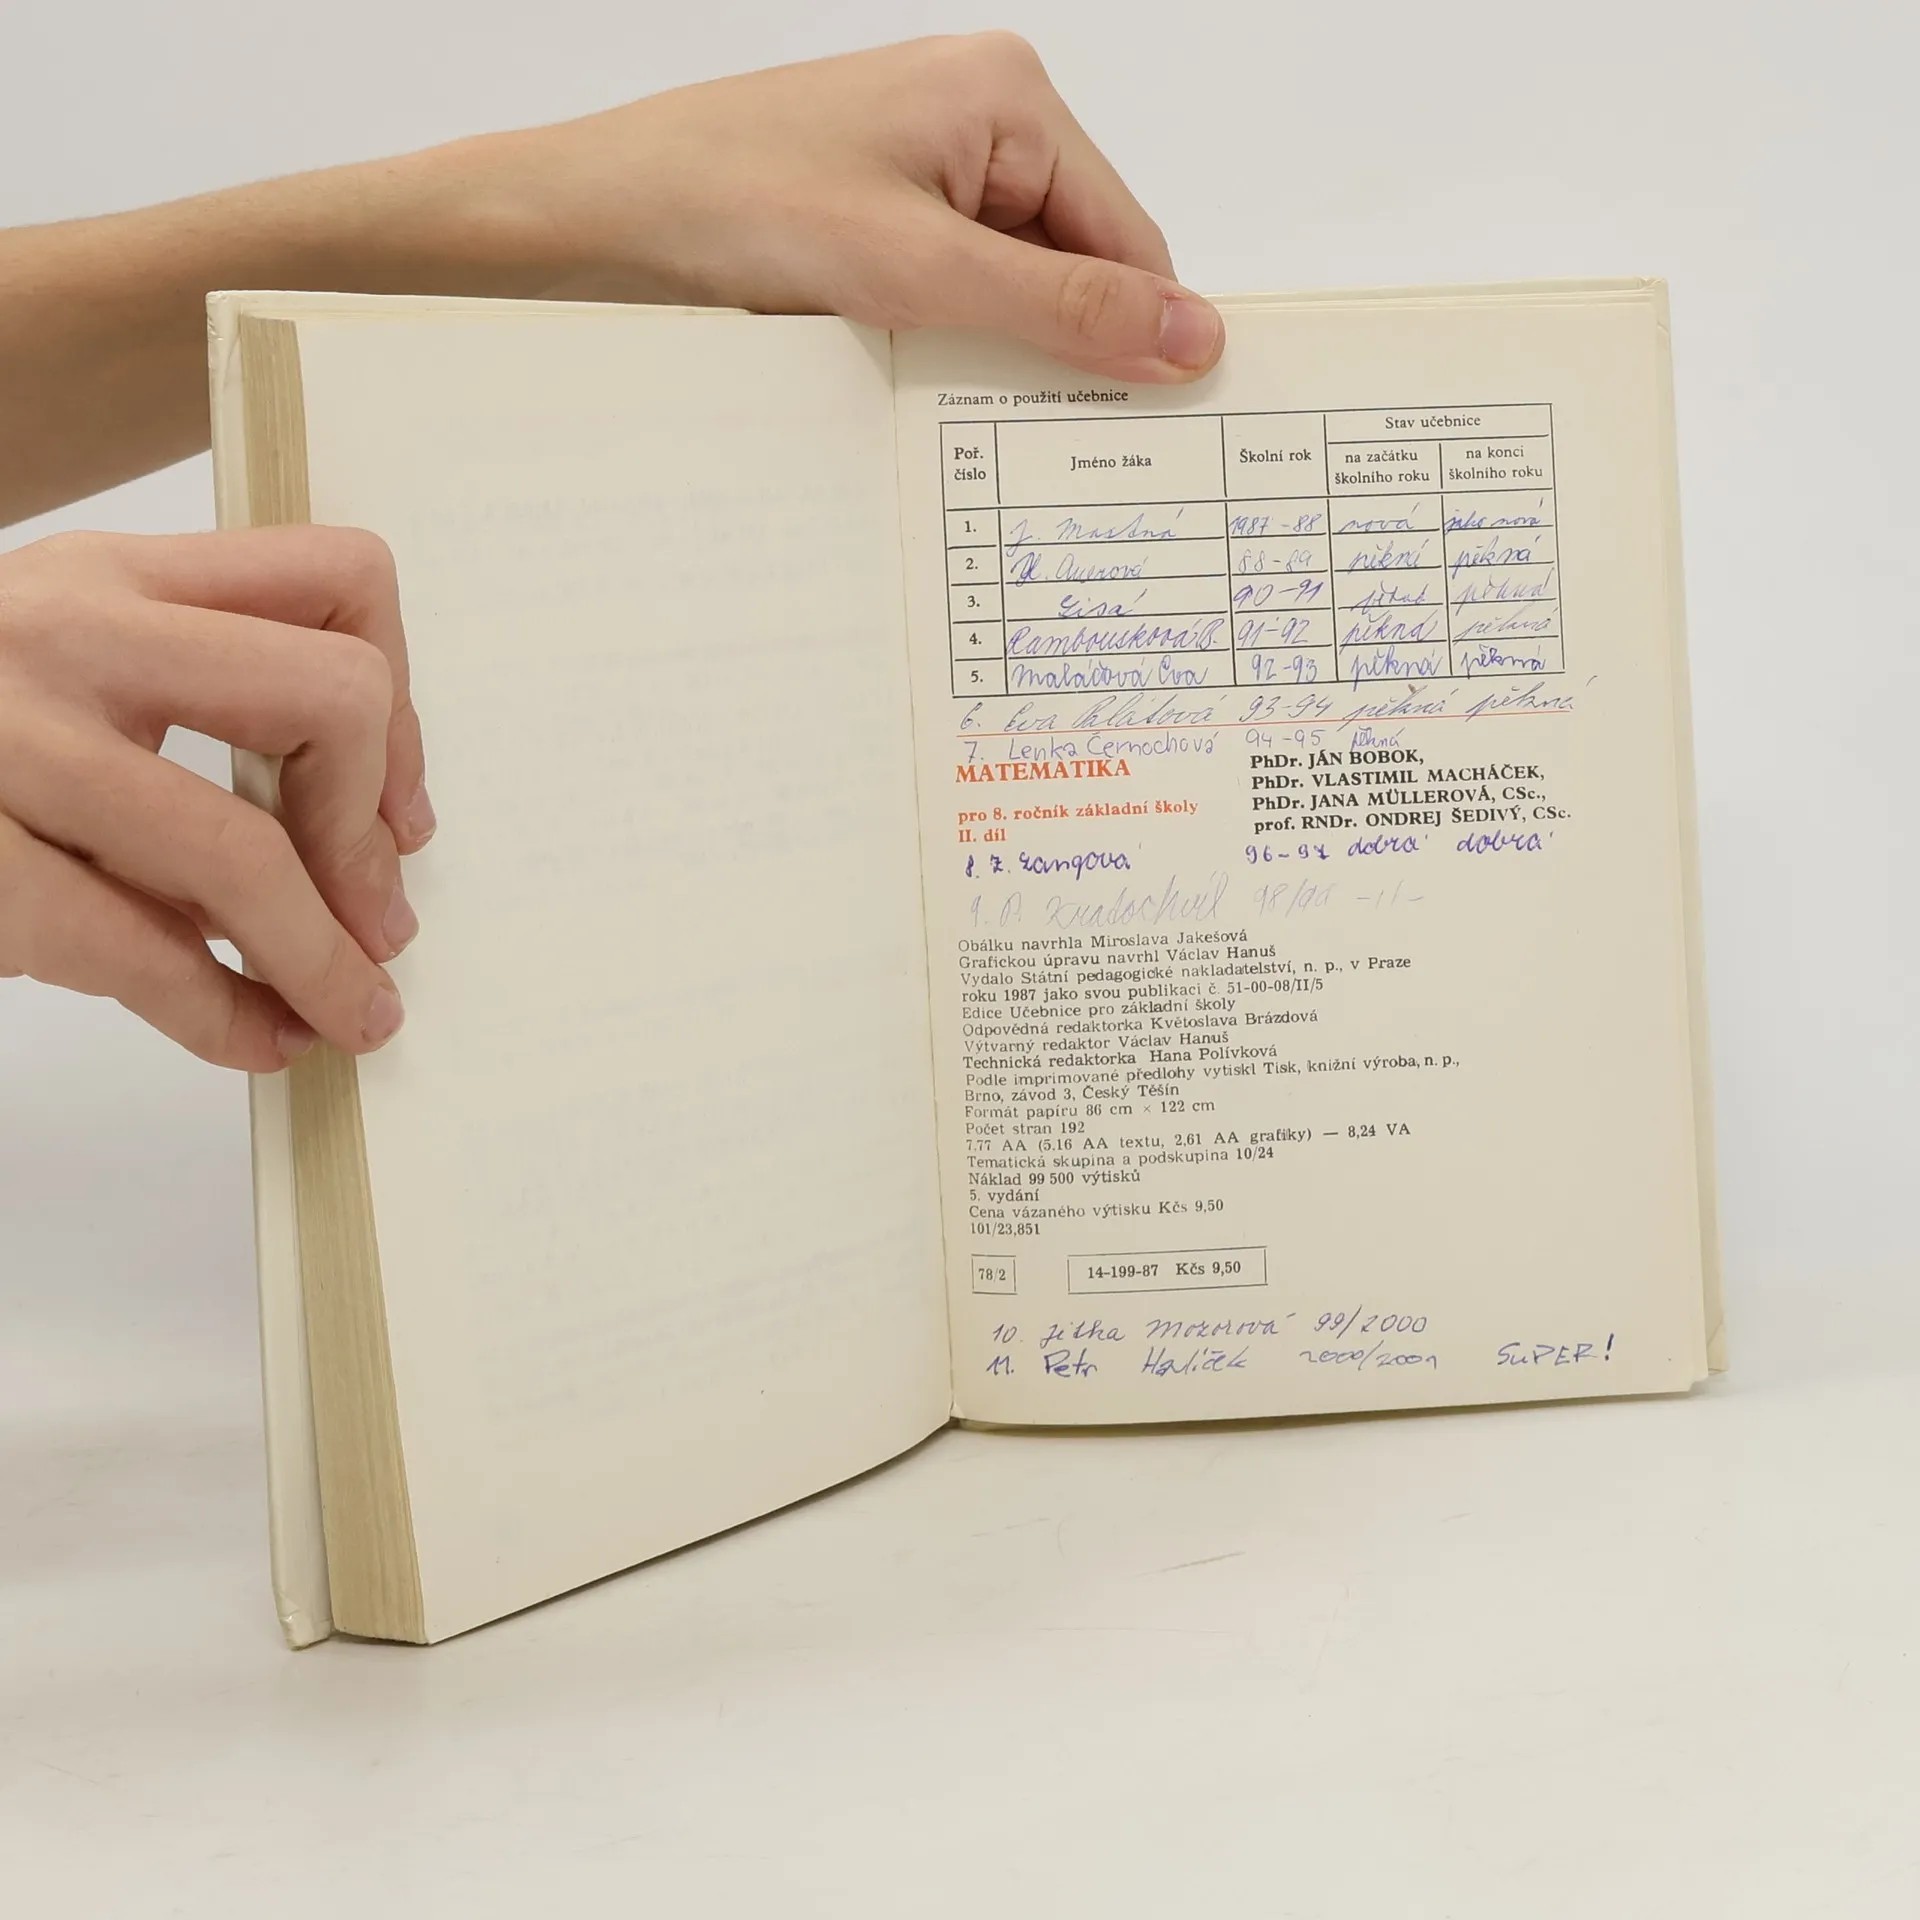 Záznam o použití učebnice
Poř. číslo Jméno žáka Školní rok Stav učebnice
na začátku školního roku na konci školního roku
1. J. Mastná 1987-88 nová jako nová
2. H. Auerová 88-89 pěkná pěkná
3. Lisá 90-91 pěkná pěkná
4. Rambousková B. 91-92 pěkná pěkná
5. Maláčová Eva 92-93 pěkná pěkná
6. Eva 93-94 pěkná pěkná
7. Lenka Černochová 94-95 pěkná
MATEMATIKA
pro 8. ročník základní školy
II. díl
PhDr. JÁN BOBOK,
PhDr. VLASTIMIL MACHÁČEK,
PhDr. JANA MÜLLEROVÁ, CSc.,
prof. RNDr. ONDREJ ŠEDIVÝ, CSc.
8. Z. Langová 96-97 dobrá dobrá
9. P. Kratochvíl 98/99 -11-
Obálku navrhla Miroslava Jakešová
Grafickou úpravu navrhl Václav Hanuš
Vydalo Státní pedagogické nakladatelství, n. p., v Praze
roku 1987 jako svou publikaci č. 51-00-08/II/5
Edice Učebnice pro základní školy
Odpovědná redaktorka Květoslava Brázdová
Výtvarný redaktor Václav Hanuš
Technická redaktorka Hana Polívková
Podle imprimované předlohy vytiskl Tisk, knižní výroba, n. p.,
Brno, závod 3, Český Těšín
Formát papíru 86 cm × 122 cm
Počet stran 192
7,77 AA (5,16 AA textu, 2,61 AA grafiky) — 8,24 VA
Tematická skupina a podskupina 10/24
Náklad 99 500 výtisků
5. vydání
Cena vázaného výtisku Kčs 9,50
101/23,851
78/2 14-199-87 Kčs 9,50
10. Jitka Mozorová 99/2000
11. Petr Havlíček 2000/2001 SUPER!